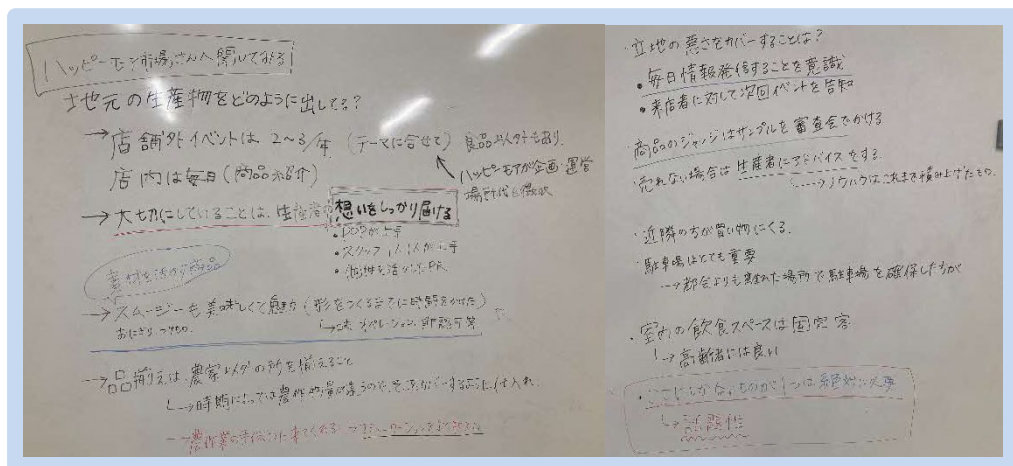 ハッピーモア市場さんへ聞いてみる
地元の生産物をどのように出してる?
→店舗外イベントは 2~3/年 (テーマに合せて) 良品以外もあり
店内は毎日(商品紹介)
ハッピーモアが企画・運営
場所代も徴収
→大切にしていることは、生産者の想いをしっかり届ける
・POPが上手
・スタッフ1人1人が上手
素材を活かす商品
→スムージーも美味しくて魅力(形をつくるまでに時間をかけた)
おにぎり
オペレーション
→品揃えは、農家以外の所を揃えること
→時期によっては農作物量が違うので、それをカバーするように仕入れ
・立地の悪さをカバーすることは?
・毎日情報発信することを意識
・来店者に対して次回イベントを告知
商品のジャッジはサンプルを審査会でかける
・売れない場合は生産者にアドバイスをする
→ノウハウはこれまで積み上げたもの
・近隣の方が買い物にくる
・駐車場はとても重要
→都会よりも離れた場所で駐車場を確保した方が
・室内の飲食スペースは固定客
→高齢者には良い
・ここにしかないものが1つは絶対に必要
→話題性